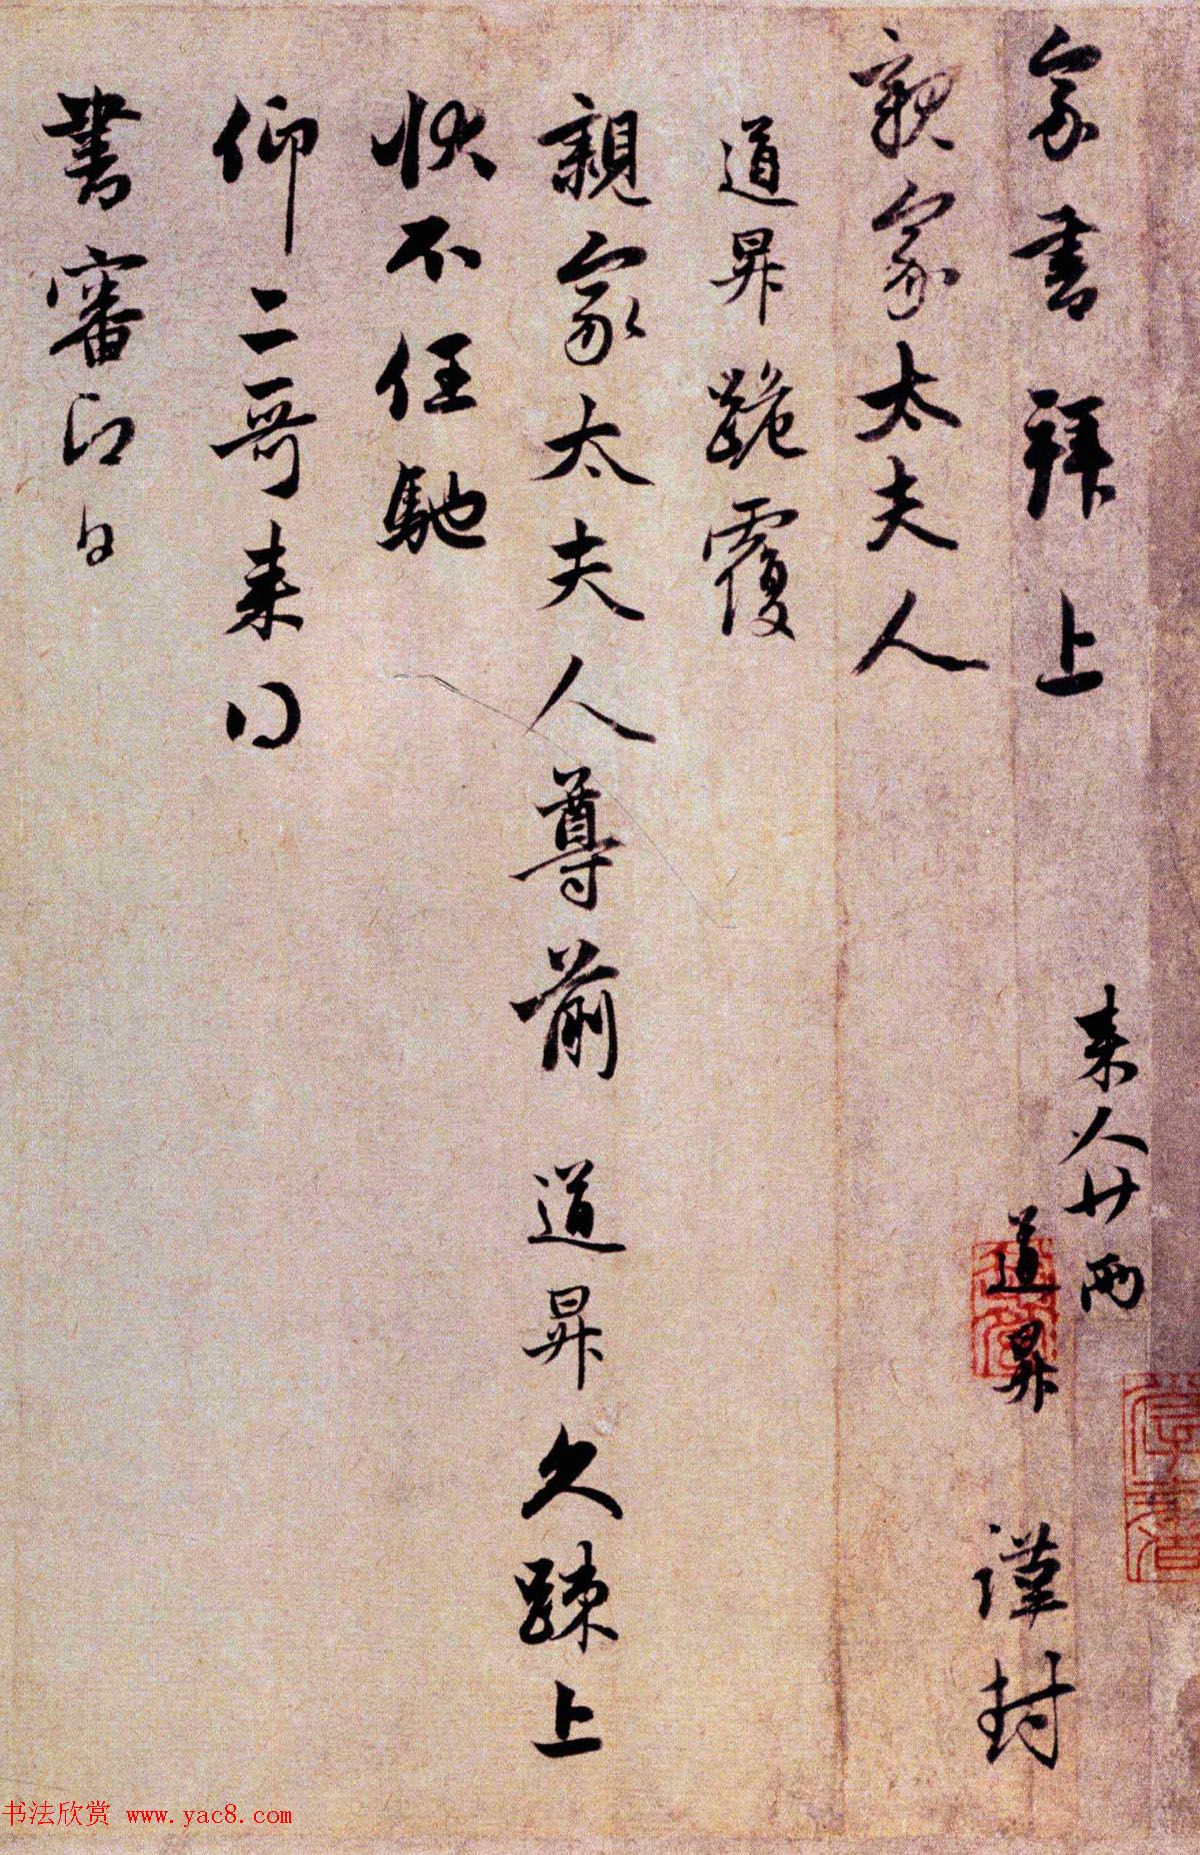 家書拜上
来人廿兩
親家太夫人
道昇 謹封
道昇跪覆
親家太夫人尊前 道昇久疎上
狀不任馳
仰二哥来得
書審即日
书法欣赏 www.yac8.com